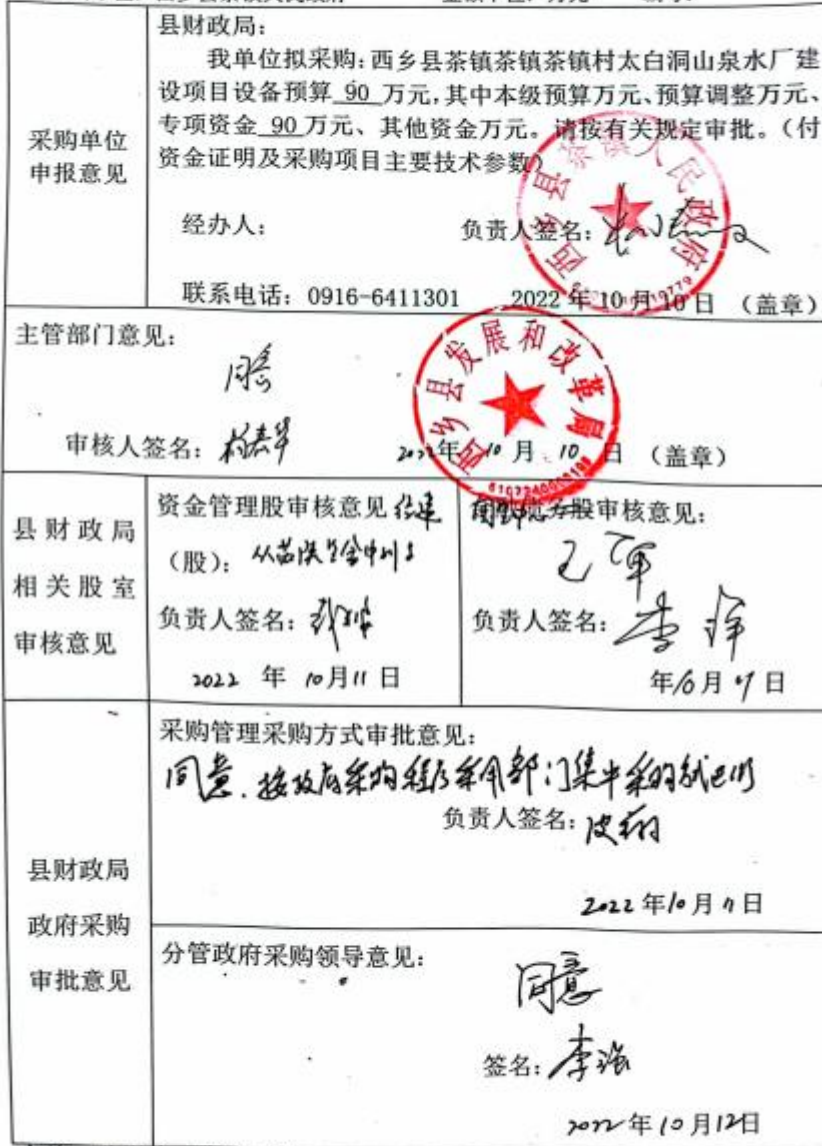 县财政局：
我单位拟采购：西乡县茶镇茶镇茶镇村太白洞山泉水厂建
设项目设备预算 90 万元，其中本级预算万元、预算调整万元、
专项资金 90 万元、其他资金万元。请按有关规定审批。（付
资金证明及采购项目主要技术参数）
采购单位
申报意见
经办人：
负责人签名：
西乡县茶镇人民政府
联系电话：0916-6411301
2022 年 10 月 10 日 （盖章）
主管部门意见：
同意
西乡县发展和改革局
审核人签名：
2022年 10 月 10 日 （盖章）
县财政局
相关股室
审核意见
资金管理股审核意见
（股）：
负责人签名：
2022 年 10月11日
股审核意见：
负责人签名：
年10月 日
县财政局
政府采购
审批意见
采购管理采购方式审批意见：
同意．按政府采购程序采用部门集中采购
负责人签名：
2022年10月11日
分管政府采购领导意见：
同意
签名：李强
2022年10月12日